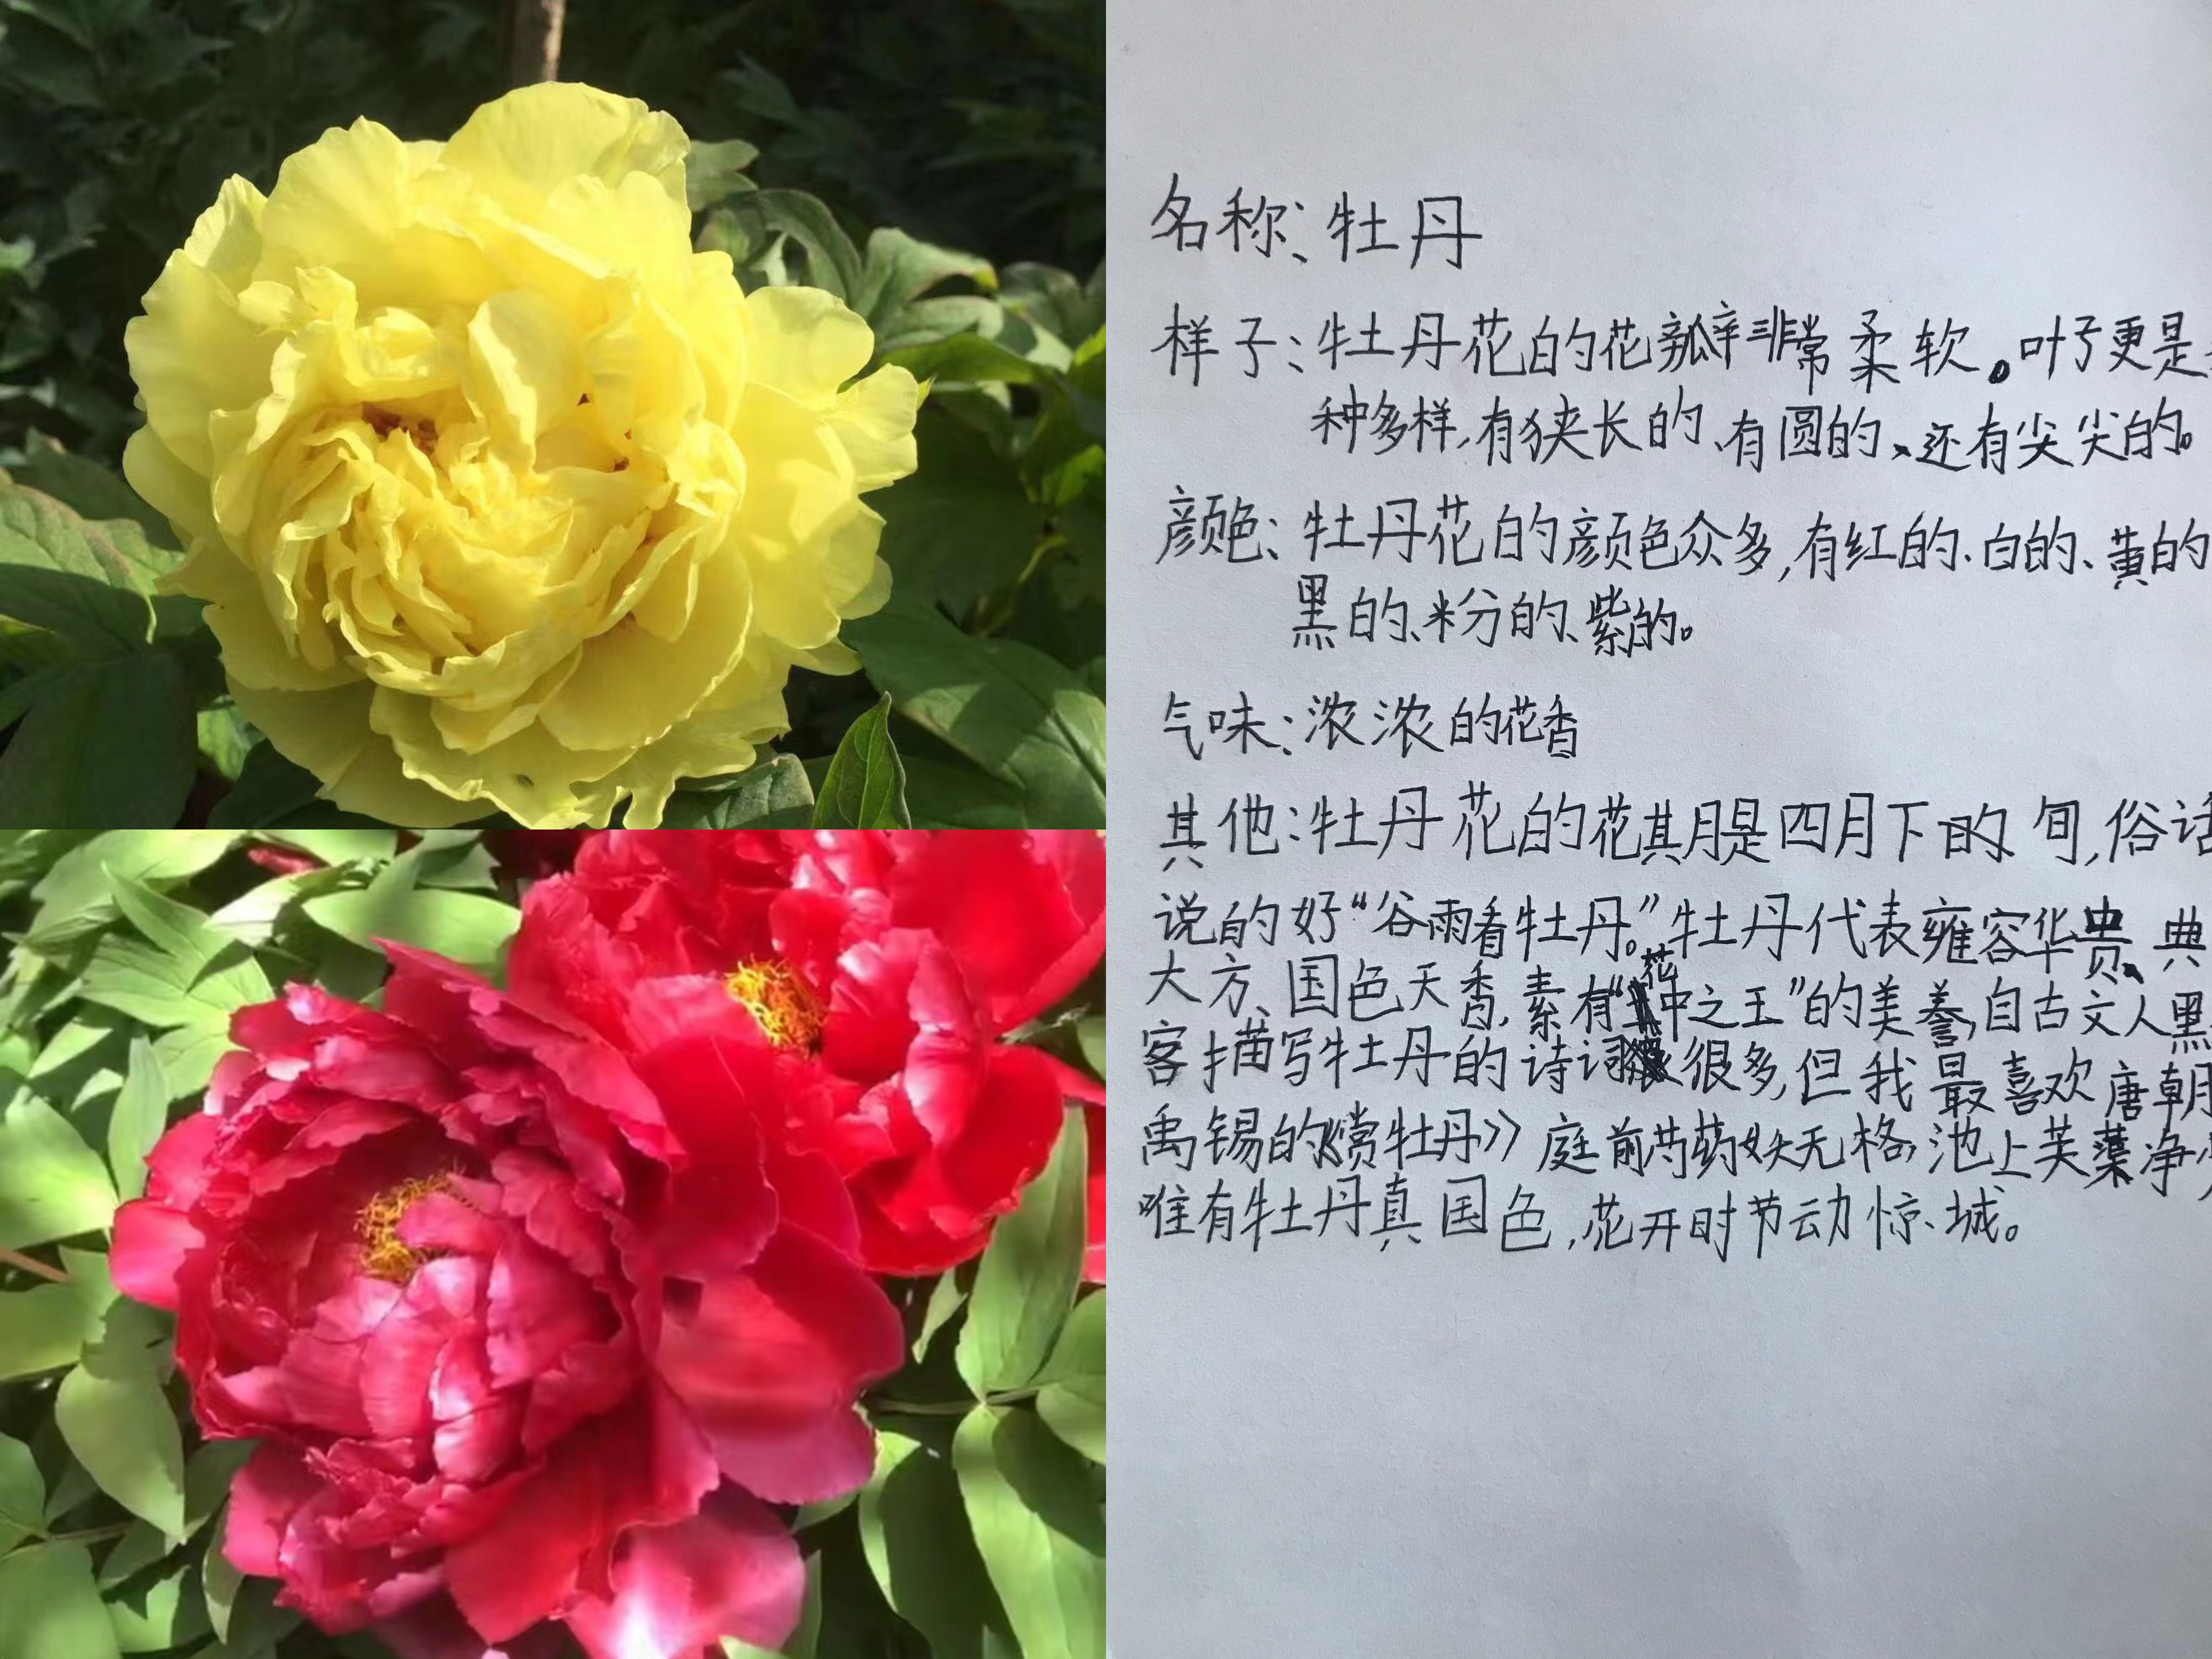 名称：牡丹
样子：牡丹花的花瓣非常柔软。叶子更是
种多样，有狭长的、有圆的、还有尖尖的。
颜色：牡丹花的颜色众多，有红的、白的、黄的
黑的、粉的、紫的。
气味：浓浓的花香
其他：牡丹花的花其月是四月下的旬，俗话
说的好“谷雨看牡丹。”牡丹代表雍容华贵、典
大方、国色天香，素有“花中之王”的美誉，自古文人黑
客描写牡丹的诗词很多，但我最喜欢唐朝
禹锡的《赏牡丹》庭前芍药妖无格，池上芙蕖净
唯有牡丹真国色，花开时节动惊城。